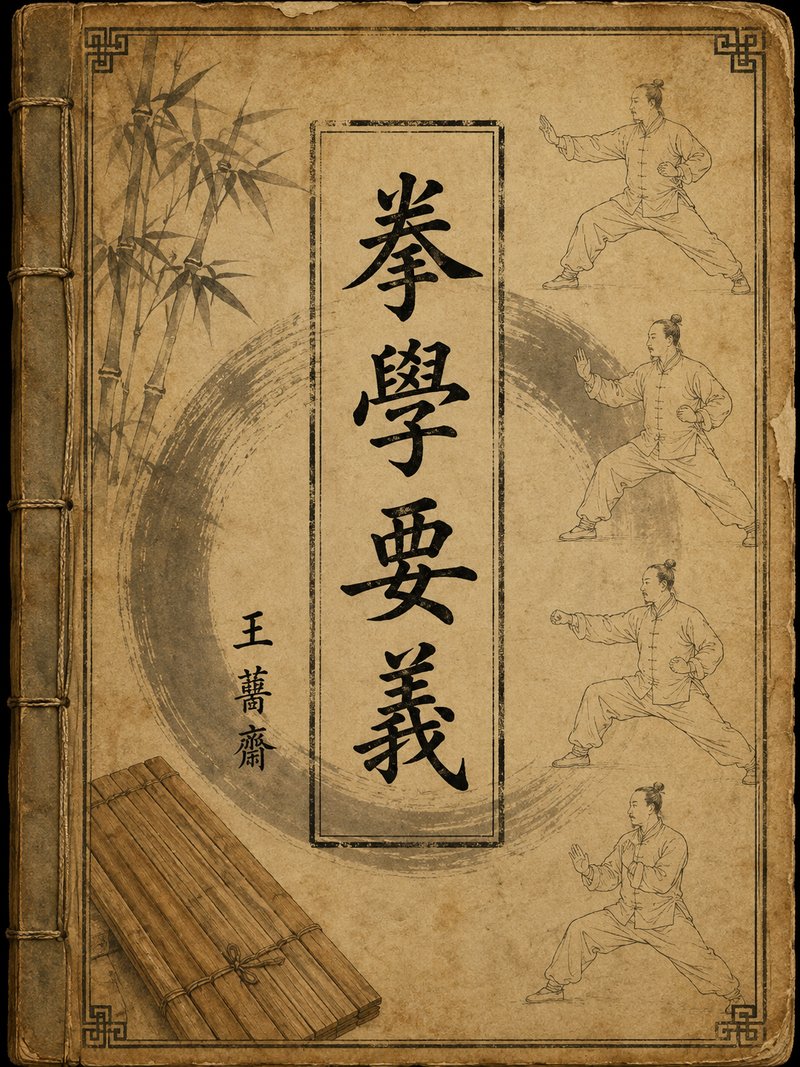 拳學要義
王薔齋